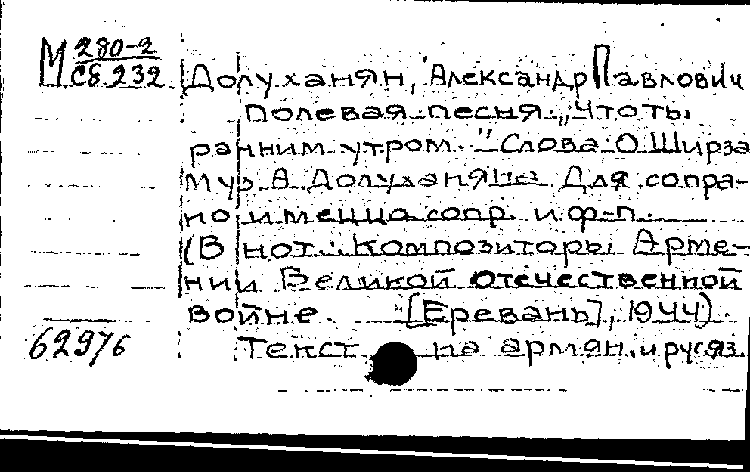 М 280-2
Сб.232
Долуханян, Александр Павлович
Полевая песня. „Что ты
ранним утром." Слова О Ширза
Муз. А. Долуханяна Для сопра-
но и меццо сопр. и ф-п.
(В нот.: Композиторы Арме-
нии Великой отечественной
войне. [Еревань], 1944).
62976
Текст на армян. и рус яз.